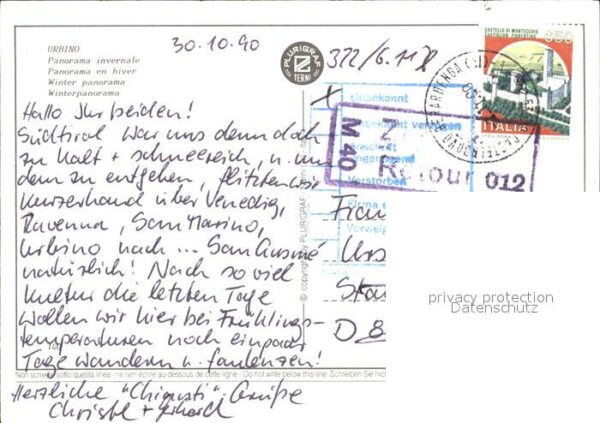 URBINO
Panorama invernale
Panorama en hiver
Winter panorama
Winterpanorama
30.10.90
Hallo Ihr beiden!
Südtirol war uns denn doch
zu kalt + schneereich, u. um
dem zu entgehen, flitzten wir
kurzerhand über Venedig,
Ravenna, San Marino,
Urbino nach ... San Gusmé
natürlich! Nach so viel
Kultur die letzten Tage
wollen wir hier bei Frühlings-
temperaturen noch ein paar
Tage wandern u. faulenzen!
Non scrivere sotto questa linea - ne rien écrire au dessous de cette ligne - Do not write below this line. Schreiben Sie nich
Herzliche "Chianti" Grüße
Christl + Gerhard
PLURIGRAF
TERNI
© copyright by PLURIGRAF
372/6.11
CASTELLO DI MONTECCHIO
CASTIGLION FIORENTINO
650
ITALIA
Unbekannt
Verstorben
Firma
Z
M 40 Retour 012
Frau
Urs
D 8
privacy protection
Datenschutz